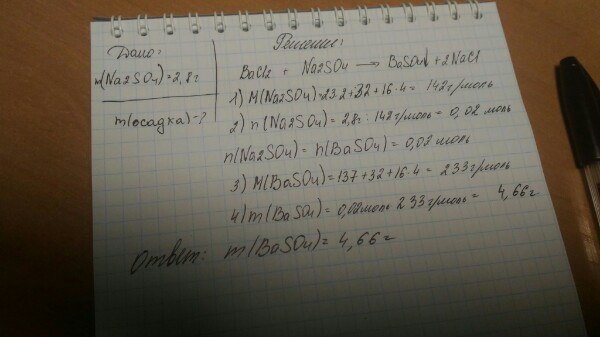 Дано:
m(Na2SO4)=2,8г
m(осадка)-?
Решение:
BaCl2 + Na2SO4 → BaSO4↓ +2NaCl
1) M(Na2SO4)=23·2+32+16·4= 142г/моль
2) n(Na2SO4)=2,8г:142г/моль=0,02 моль
n(Na2SO4)= n(BaSO4)=0,02 моль
3) M(BaSO4)=137+32+16·4=233г/моль
4) m(BaSO4)= 0,02моль·233г/моль= 4,66г
Ответ: m(BaSO4)= 4,66г